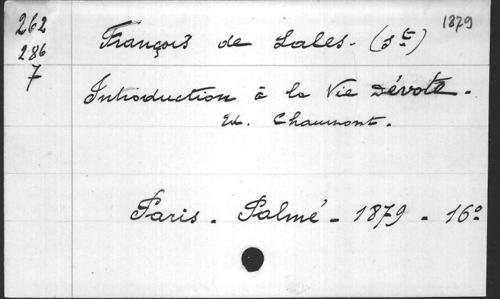 1879
262
286
7
François de Sales - (St)
Introduction à la Vie Dévote.
Ed. Chaumont.
Paris. Palmé - 1879 - 16º